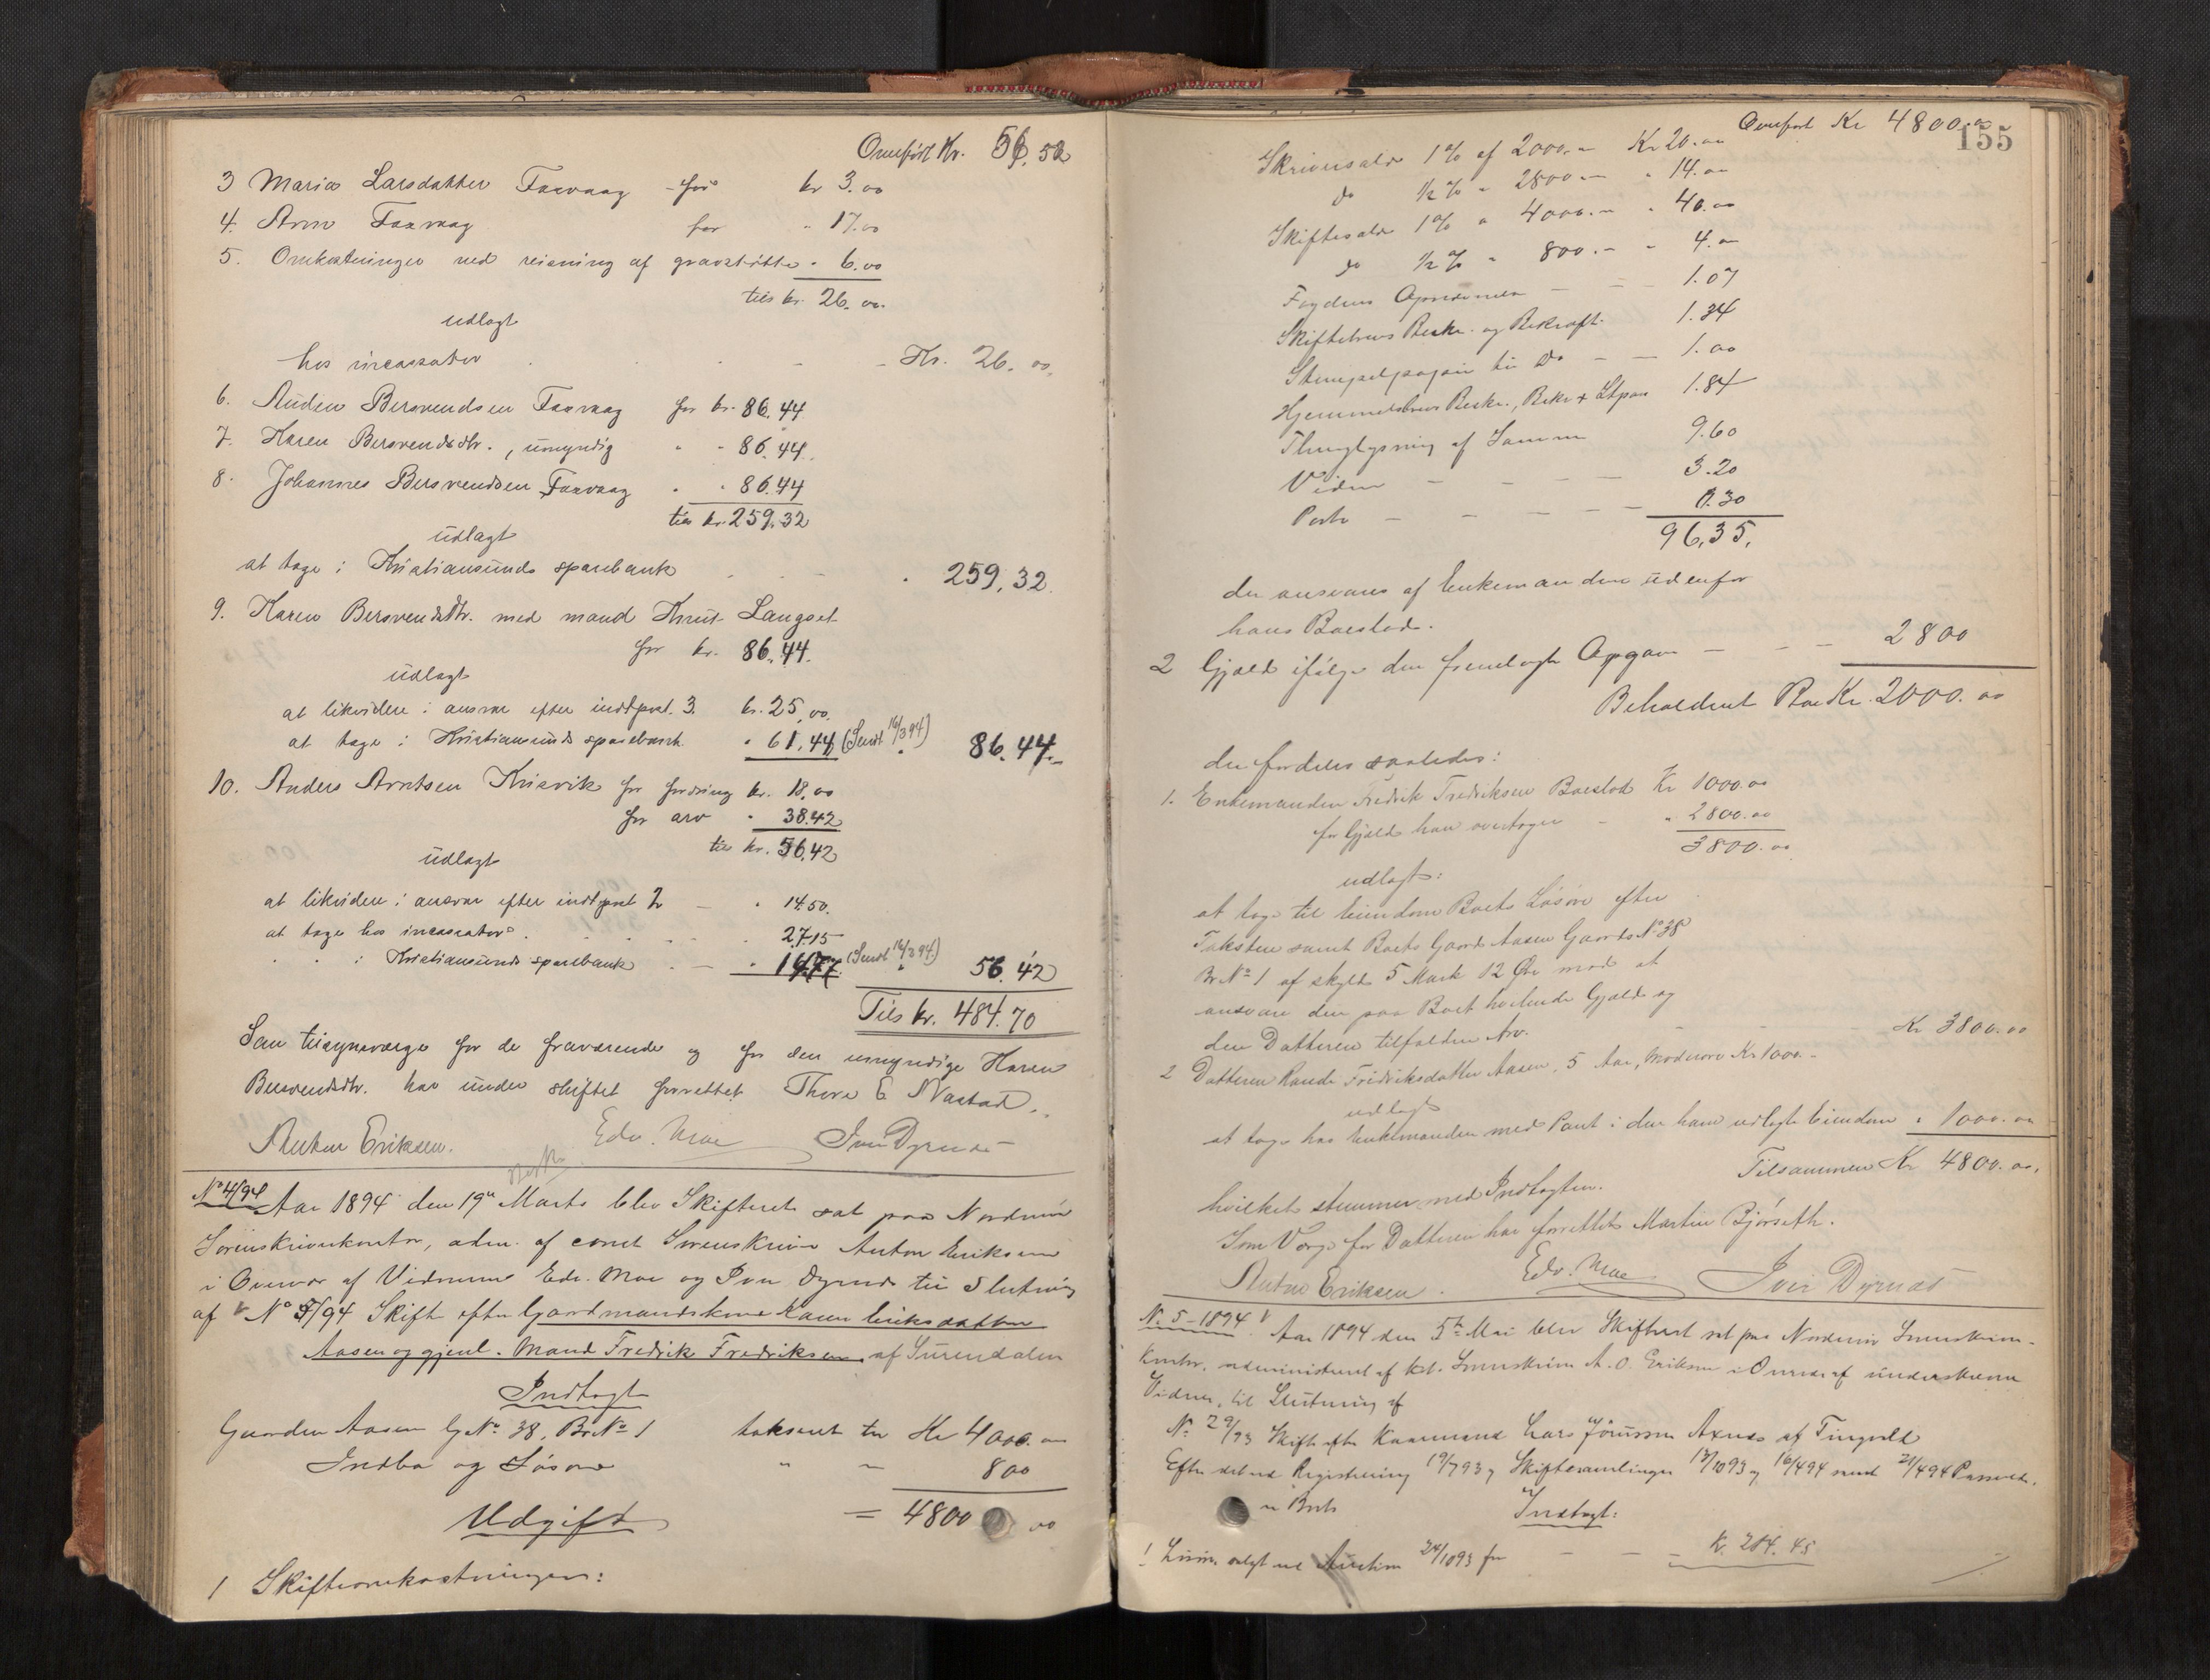 Omført Kr. 56.52
3 Maria Larsdatter Faxvaag for kr 3.00
4. Arne Faxvaag for " 17.00
5. Omkostninger ved reisning af gravstøtte " 6.00
tils kr. 26.00
udlagt
hos incassator - - Kr. 26.00
6. Auden Bersvendsen Faxvaag for kr. 86.44
7. Karen Bersvendsdtr., umyndig " " 86.44
8. Johannes Bersvendsen Faxvaag " " 86.44
tils kr. 259.32
udlagt
at tage i Kristiansunds sparebank " 259,32.
9. Karen Bersvendsdtr. med mand Knut Langset
for kr. 86.44.
udlagt
at likvidere i ansvar efter indtpost. 3. kr. 25,00.
at tage i Kristiansunds sparebank " 61,44 (Sendt 16/3 94) 86.44.
10. Anders Arntsen Krisvik for fordring kr. 18,00
for arv " 38.42
tils kr. 56,42
udlagt
at likvidere i ansvar efter indtpost 2 - " 14.50.
at tage hos incassator " 27.15
" " i Kristiansunds sparebank - " 14.77 (Sendt 16/3 94.) 56.42
Tils kr. 484.70
Som tilsynsværge for de fraværende og for den umyndige Karen
Bersvendsdtr. har under skiftet forrettet Thore E Nastad.
Anton Eriksen. Edv. Moe Iver Dyrnæs
No 4/94 Aar 1894 den 19de Marts blev Skifteret sat paa Nordmør
Sorenskriverkontor, adm. af const Sorenskriver Anton Eriksen
i Overvær af Vidnerne Edv. Moe og Iver Dyrnæs til Slutning
af No 5/94 Skift efter Gaardmandskone Karen Eriksdatter
Aasen og gjenl. Mand Fredrik Fredriksen af Surendalen
Indtægt
Gaarden Aasen G.No. 38, Br.No 1 takseret til Kr 4000.00
Indbo og Løsøre " - 800
Udgift = 4800 00
1 Skifteomkostninger:
155
Overført Kr 4800.00
Skriversalær 1% af 2000.- Kr 20.00
do ½ % " 2800 - " 14.00
Skiftesalær 1% " 4000.- " 40.00
do ½ % " 800.- - 4.00
Fogdens - - 1.07
Skiftebrevs Beskr. og Bekræft. 1.34
Stempelpapir til do - - 1.00
Hjemmelsbrevs Beskr., Bekr + Stpap 1.84
Thinglysning af Samme 9.60
Vidner - - - - 3.20
Porto - - - - 0.30
96,35.
der ansvares af Enkemanden udenfor
hans Boeslod.
2 Gjæld ifølge den fremlagte Opgave - - - 2800
Beholdent Boe Kr. 2000.00
der fordeles saaledes:
1. Enkemanden Fredrik Fredriksen Boeslod Kr 1000.00
for Gjæld han overtager - " 2800.00
3800.00
udlagt:
at tage til Eiendom Boets Løsøre efter
Taksten samt Boets Gaard Aasen Gaards No 38
Br.No 1 af skyld 5 Mark 12 Øre mod at
ansvare den paa Boet heftende Gjæld og
den Datteren tilfaldne Arv. - - Kr 3800.00
2 Datteren Randi Fridriksdatter Aasen, 5 Aar, Mødrearv Kr 1000.-
udlagt
at tage hos Enkemanden med Pant i den ham udlagte Eiendom " 1000.00
Tilsammen Kr 4800.00.
hvilket stemmer med Indtægten.
Som Værge for Datteren har forrettet Martin Bjørseth.
Anton Eriksen. Edv. Moe Iver Dyrnæs
No. 5-1894 Aar 1894 den 5te Mai blev Skifteret sat paa Nordmør Sorenskriver-
kontor, administreret af kst. Sorenskriver A. O. Eriksen i Overvær af underskrevne
Vidner, til Slutning af
No. 29/93 Skifte efter Kaarmand Lars Jørnssen Axnæs af Tingvold
Efter Registrering 19/7 93 og Skiftesamlinger 13/10 93 og 16/4 94 samt 21/4 94
er Boets Indtægt:
1 Løsøre solgt ved Auktion 24/10 93 for - - - K. 284.45